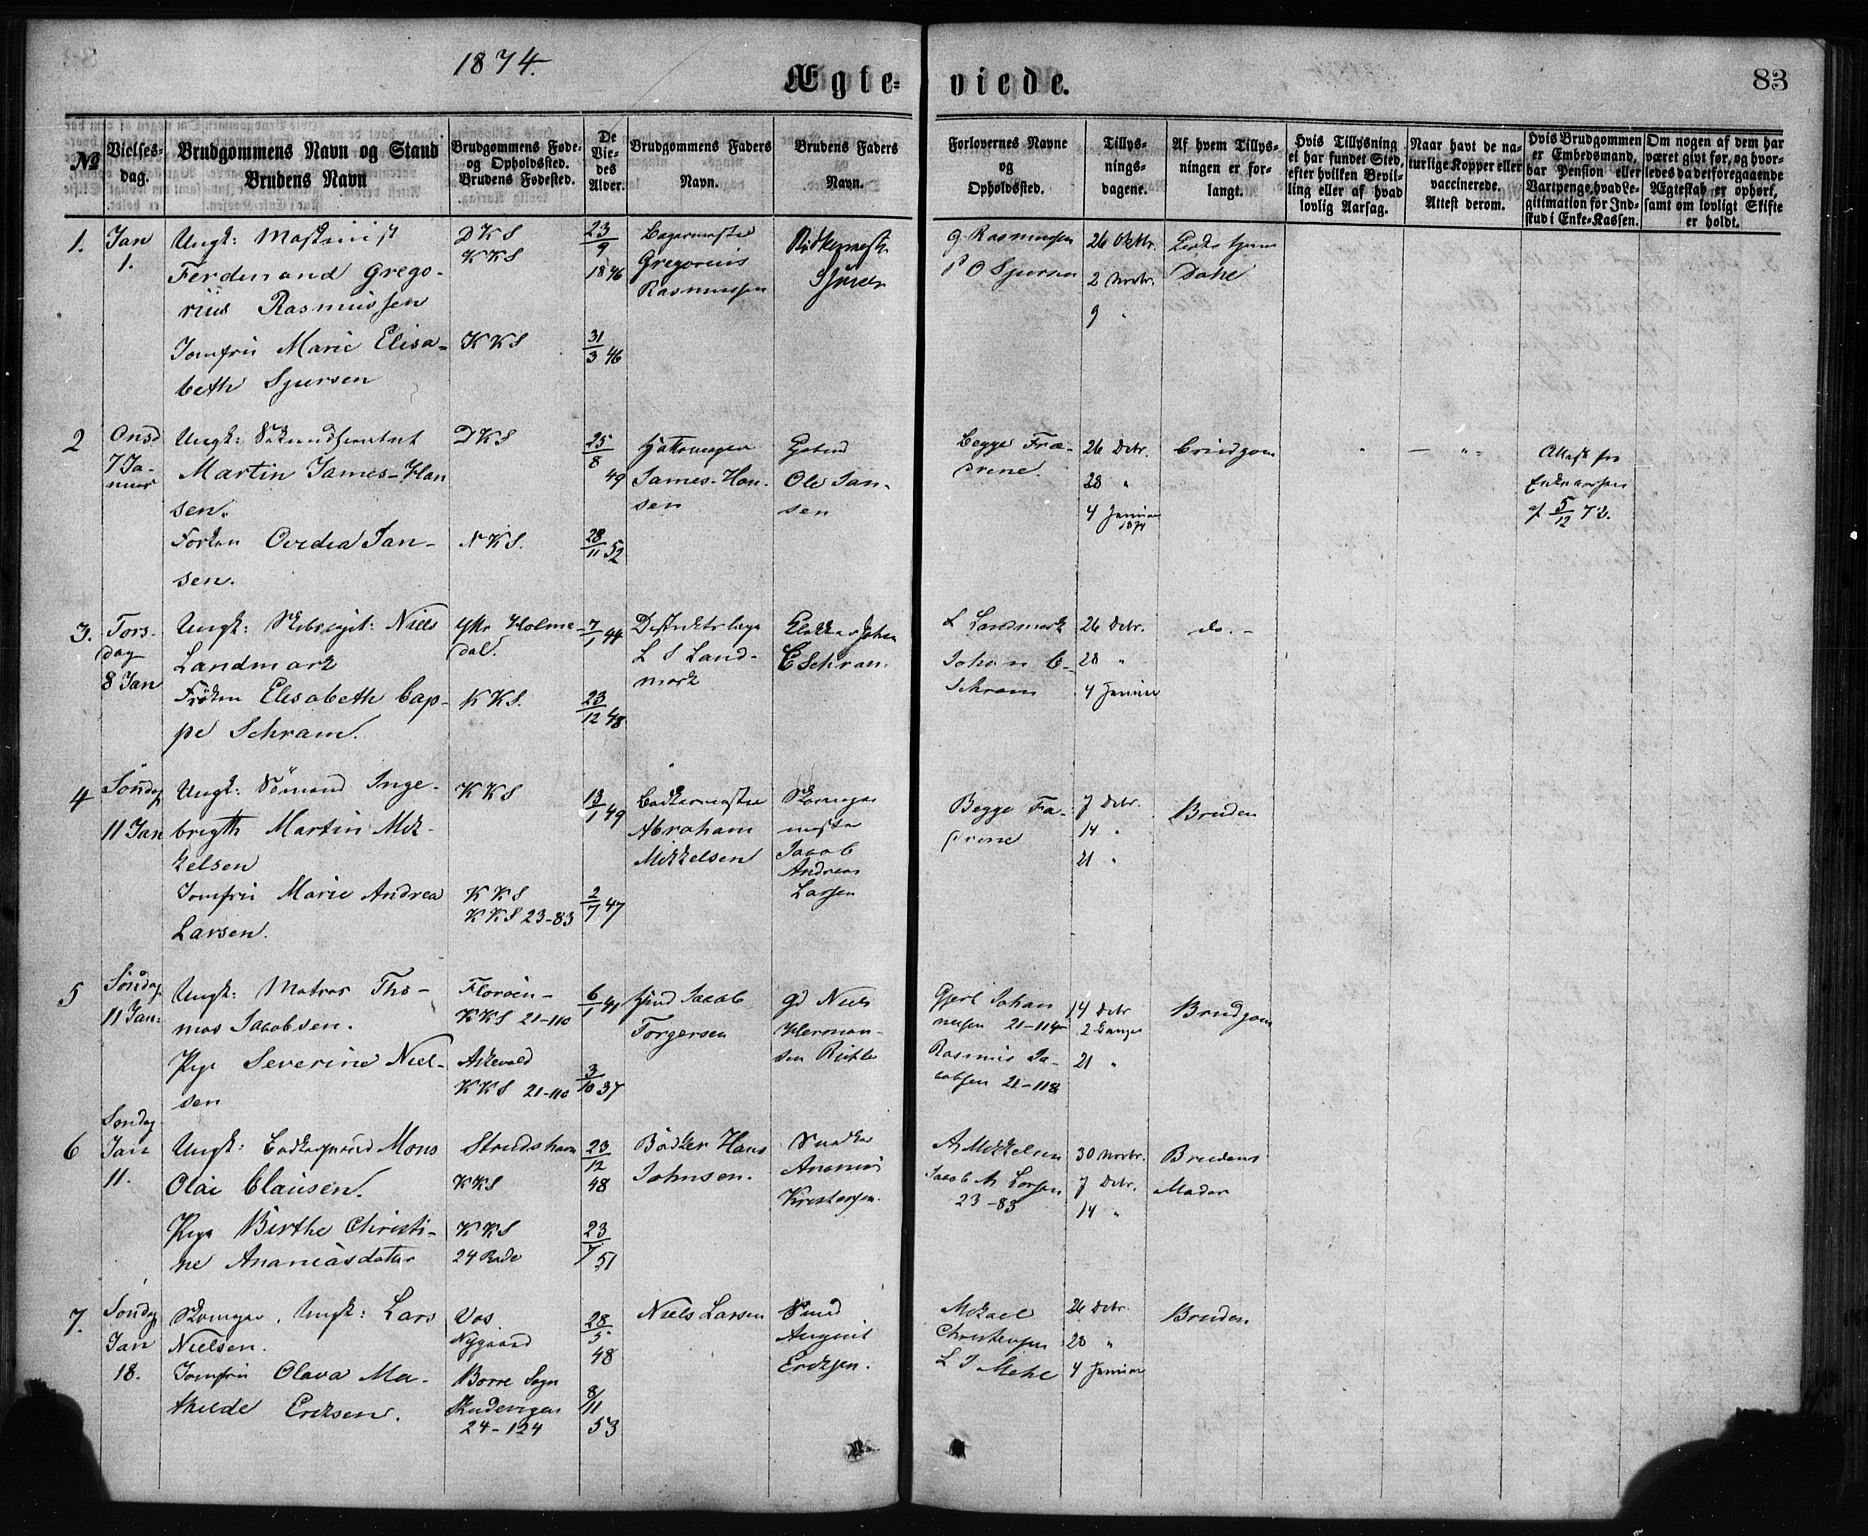 1874.
Ægte-
viede.
83
№
Vielses-
dag.
Brudgommens Navn og Stand
Brudens Navn
Brudgommens Føde-
og Opholdssted.
Brudens Fødested.
De
Vie-
des
Alder.
Brudgommens Faders
Navn.
Brudens Faders
Navn.
Forlovernes Navne
og
Opholdssted.
Tillys-
nings-
dagene.
Af hvem Tillys-
ningen er for-
langt.
Hvis Tillysning
ei har fundet Sted,
efter hvilken Bevil-
ling eller af hvad
lovlig Aarsag.
Naar havt de na-
turlige Kopper eller
vaccinerede.
Attest derom.
Hvis Brudgommen
er Embedsmand,
har Pension eller
Vartpenge, hvad Le-
gitimation for Ind-
skud i Enke-Kassen.
Om nogen af dem har
været givt før, og hvor-
ledes da det foregaaende
Ægteskab er ophørt,
samt om lovligt Skifte
er holdt.
1.
Jan
1.
Ungk: Maskinist
Ferdinand Grego-
rius Rasmussen
Jomfru Marie Elisa-
beth Sjursen
DKS
KKS
KKS
23
9
1846
31
3 46
Bagermester
Gregorius
Rasmussen
Sjursen
G Rasmussen
P O Sjursen
26 Oktbr.
2 Novbr.
9 "
Dahl
2
Onsd
7 Ja-
nuar
Ungk:
Martin James-Han
sen.
Frøken Ovidia Jan-
sen.
DKS
NKS.
25
8
49
28
11 52
James-Han-
sen
Ole Jan-
sen
Begge Fæ-
drene.
26 Debr.
28 "
4 Januar
1874
Brudgom
" — " -
Attest fra
Enkekassen
af 5/12 73.
3.
Tors-
dag
8 Jan
Ungk: Skibsrigt: Niels
Landmark
Frøken Elisabeth Cap-
pe Schram.
Yttr Holme-
dal.
KKS.
7
1 44
23
12 48
Distriktslæge
L S Land-
mark
Klokker Johan
C Schram
L Landmark
Johan C
Schram
26 Debr.
28 "
4 Januar
do. -
4
Søndag
11 Jan
Ungk: Sømand Inge-
brigth Martin Mik-
kelsen
Jomfru Marie Andrea
Larsen.
KKS
KKS
KKS 23-83
13
1 49
2
7 47
Bødkermester
Abraham
Mikkelsen
Skomager
mester
Jacob
Andreas
Larsen
Begge Fæ-
drene
7 Debr.
14 "
21 "
Bruden
5
Søndag
11 Jan:
Ungk: Matros Tho-
mas Jacobsen.
Pige Severine Niel-
sen
Florøen-
KKS 21-110
Askevold
KKS 21-110
6
1 41
3
10 37
Jacob
Torgersen
Gd Niels
Herman-
sen
Gjert Johan
nessen 21-114
Rasmus Ja-
cobsen 21-118
14 Debr
2 Gange
21 "
Brudgom
6
Søndag
Jan
11.
Ungk: Bødkersvend Mons
Olai Clausen.
Pige Birthe Christi-
ne Ananiasdatter
Strudshavn
KKS
KKS
24 Rode
23
12
48
23
7 51
Bødker Hans
Johnsen.
Snedker
Ananias
Kristensen.
A Mikkelsen
Jacob A Larsen
23-83
30 Novbr.
7 Debr.
14 "
Brudens
Moder
7.
Søndag
Jan
18.
Skomager, Ungk: Lars
Nielsen.
Jomfru Olava Ma-
thilde Eriksen.
Vos
Nygaard
Borre Sogn
Skudevigen
24-124
28
5
48
8/11
53
Niels Larsen
Smed
August
Eriksen.
Mikael
Christensen
L J Mehl
26 Debr.
28 "
4 Januar
Bruden